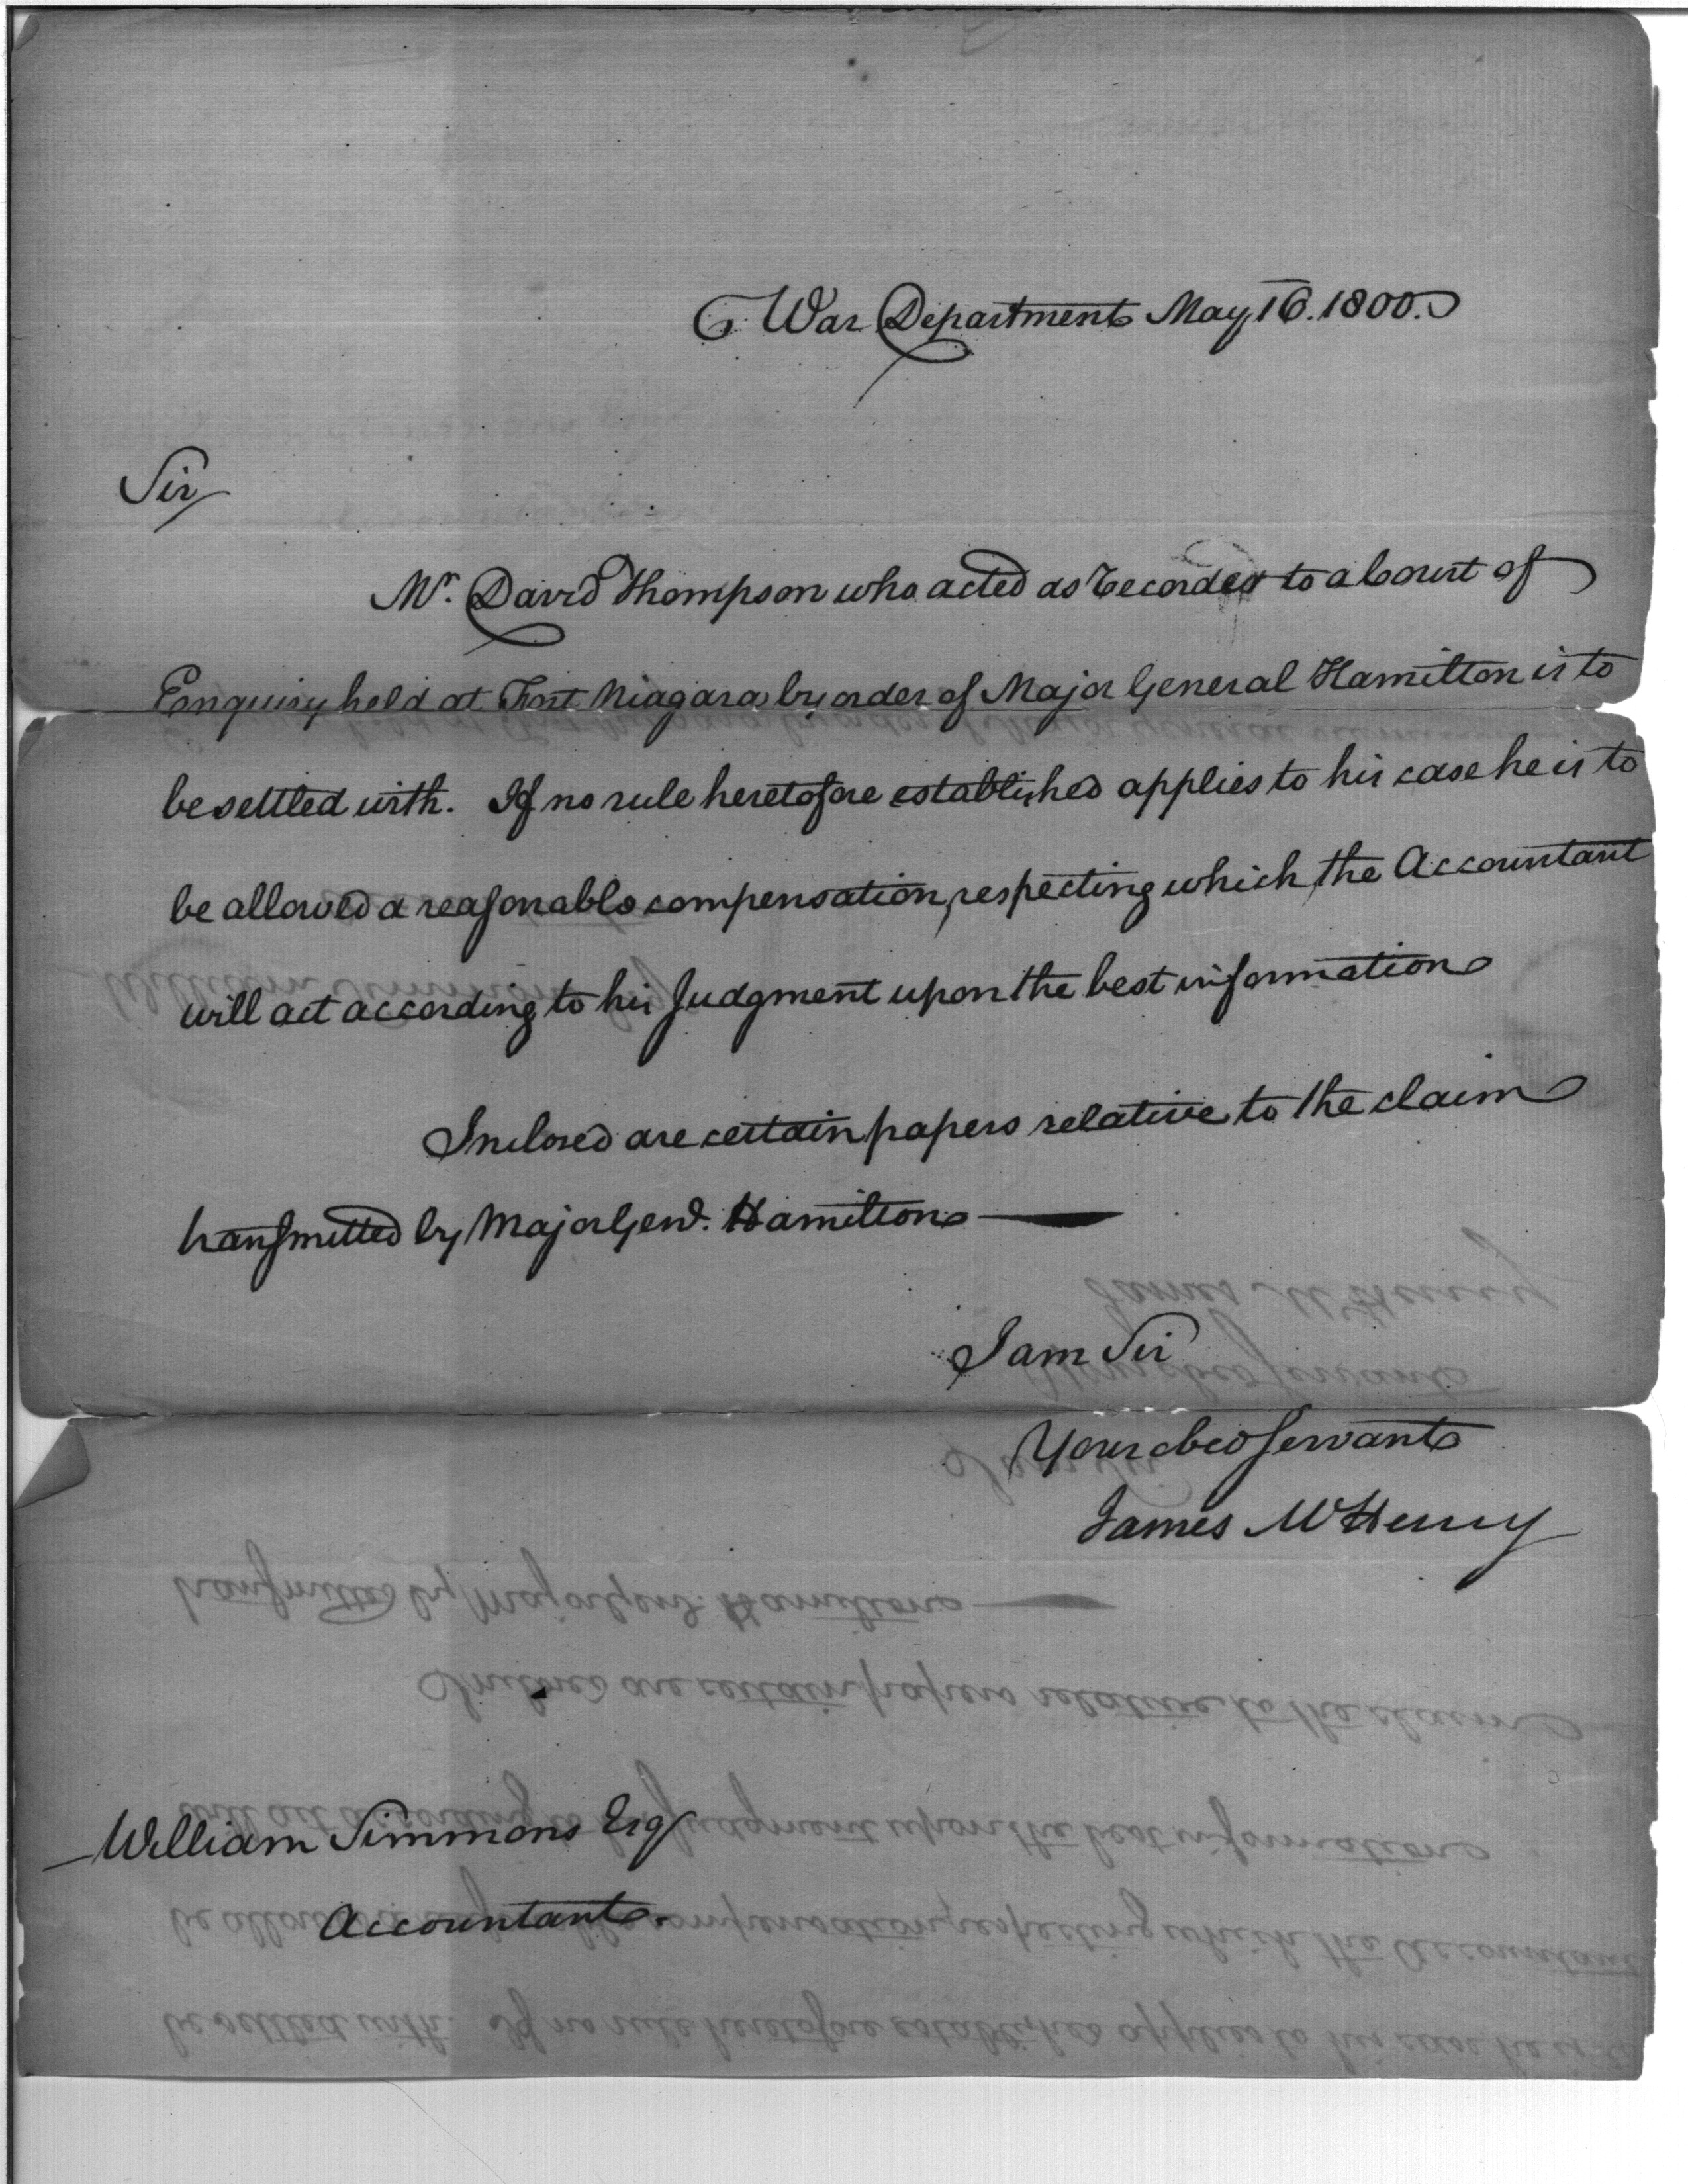 War Department May 16. 1800.
Sir
Mr. David Thompson who acted as Recorder to a Court of
Enquiry held at Fort Niagara by order of Major General Hamilton is to
be settled with. If no rule heretofore established applies to his case he is to
be allowed a reasonable compensation, respecting which, the Accountant
will act according to his Judgment upon the best information
Inclosed are certain papers relative to the claim
transmitted by Major Genl. Hamilton —
I am Sir
Your obed servant
James McHenry
William Simmons Esq
Accountant.